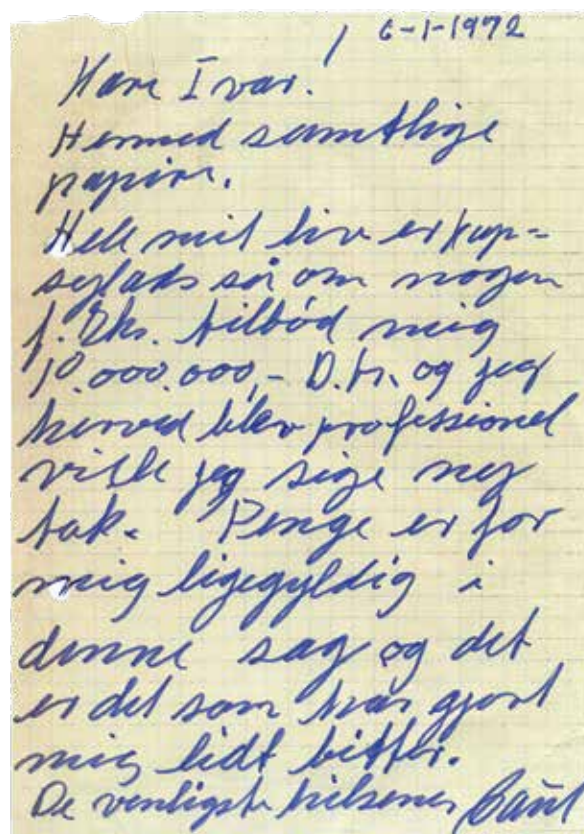 6-1-1972
Kære Ivar!
Hermed samtlige
papirer.
Hele mit liv er kap-
sejlads så om nogen
f. Eks. tilbød mig
10.000.000,- D.kr. og jeg
herved blev professionel
ville jeg sige nej
tak. Penge er for
mig ligegyldig i
denne sag og det
er det som har gjort
mig lidt bitter.
De venligste hilsener Paul